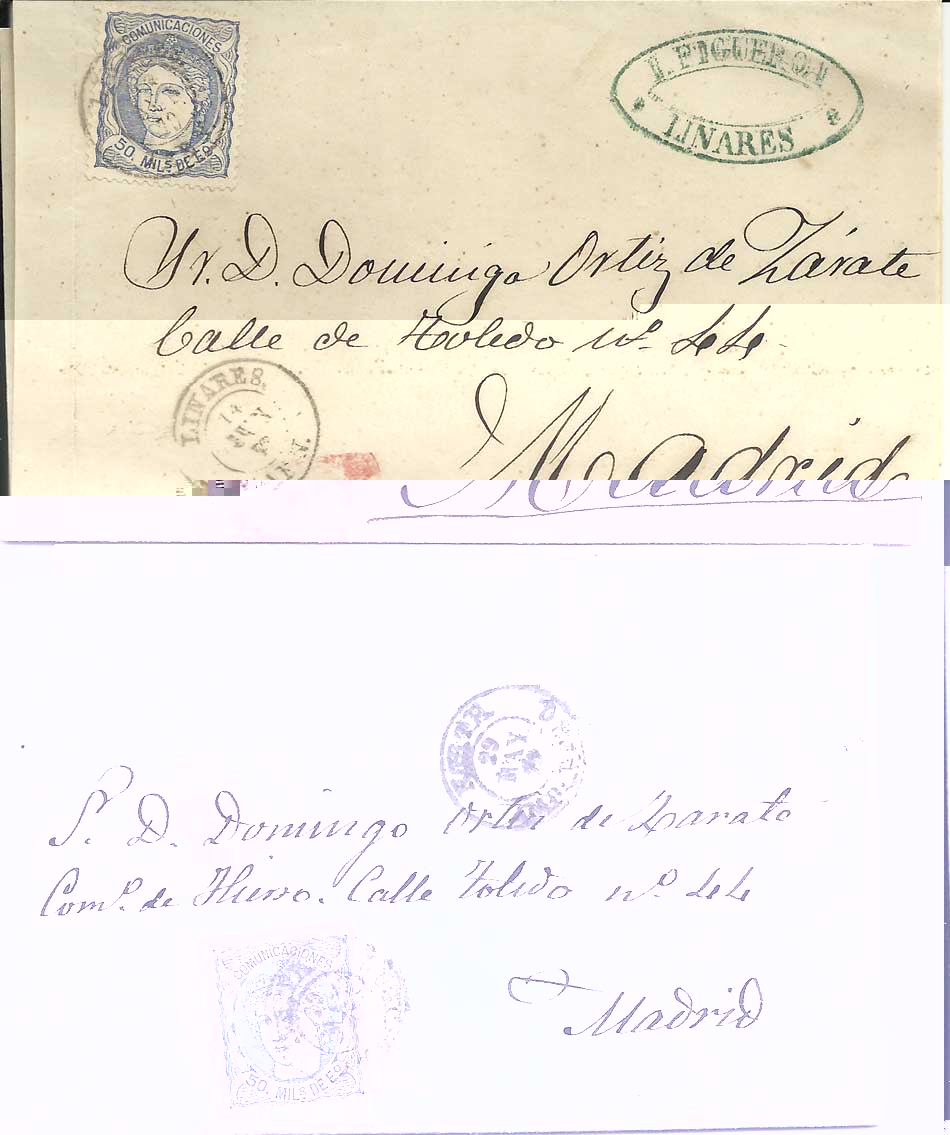 COMUNICACIONES
50. MILS DE EO
FIGUEROA
LINARES
Sr. D. Domingo Ortiz de Zárate
Calle de Toledo nº 44
LINARES.
Madrid
29
MAY
S. D. Domingo Ortiz de Zarate
Comº. de Hierro. Calle Toledo nº 44
COMUNICACIONES
50. MILS DE EO
Madrid